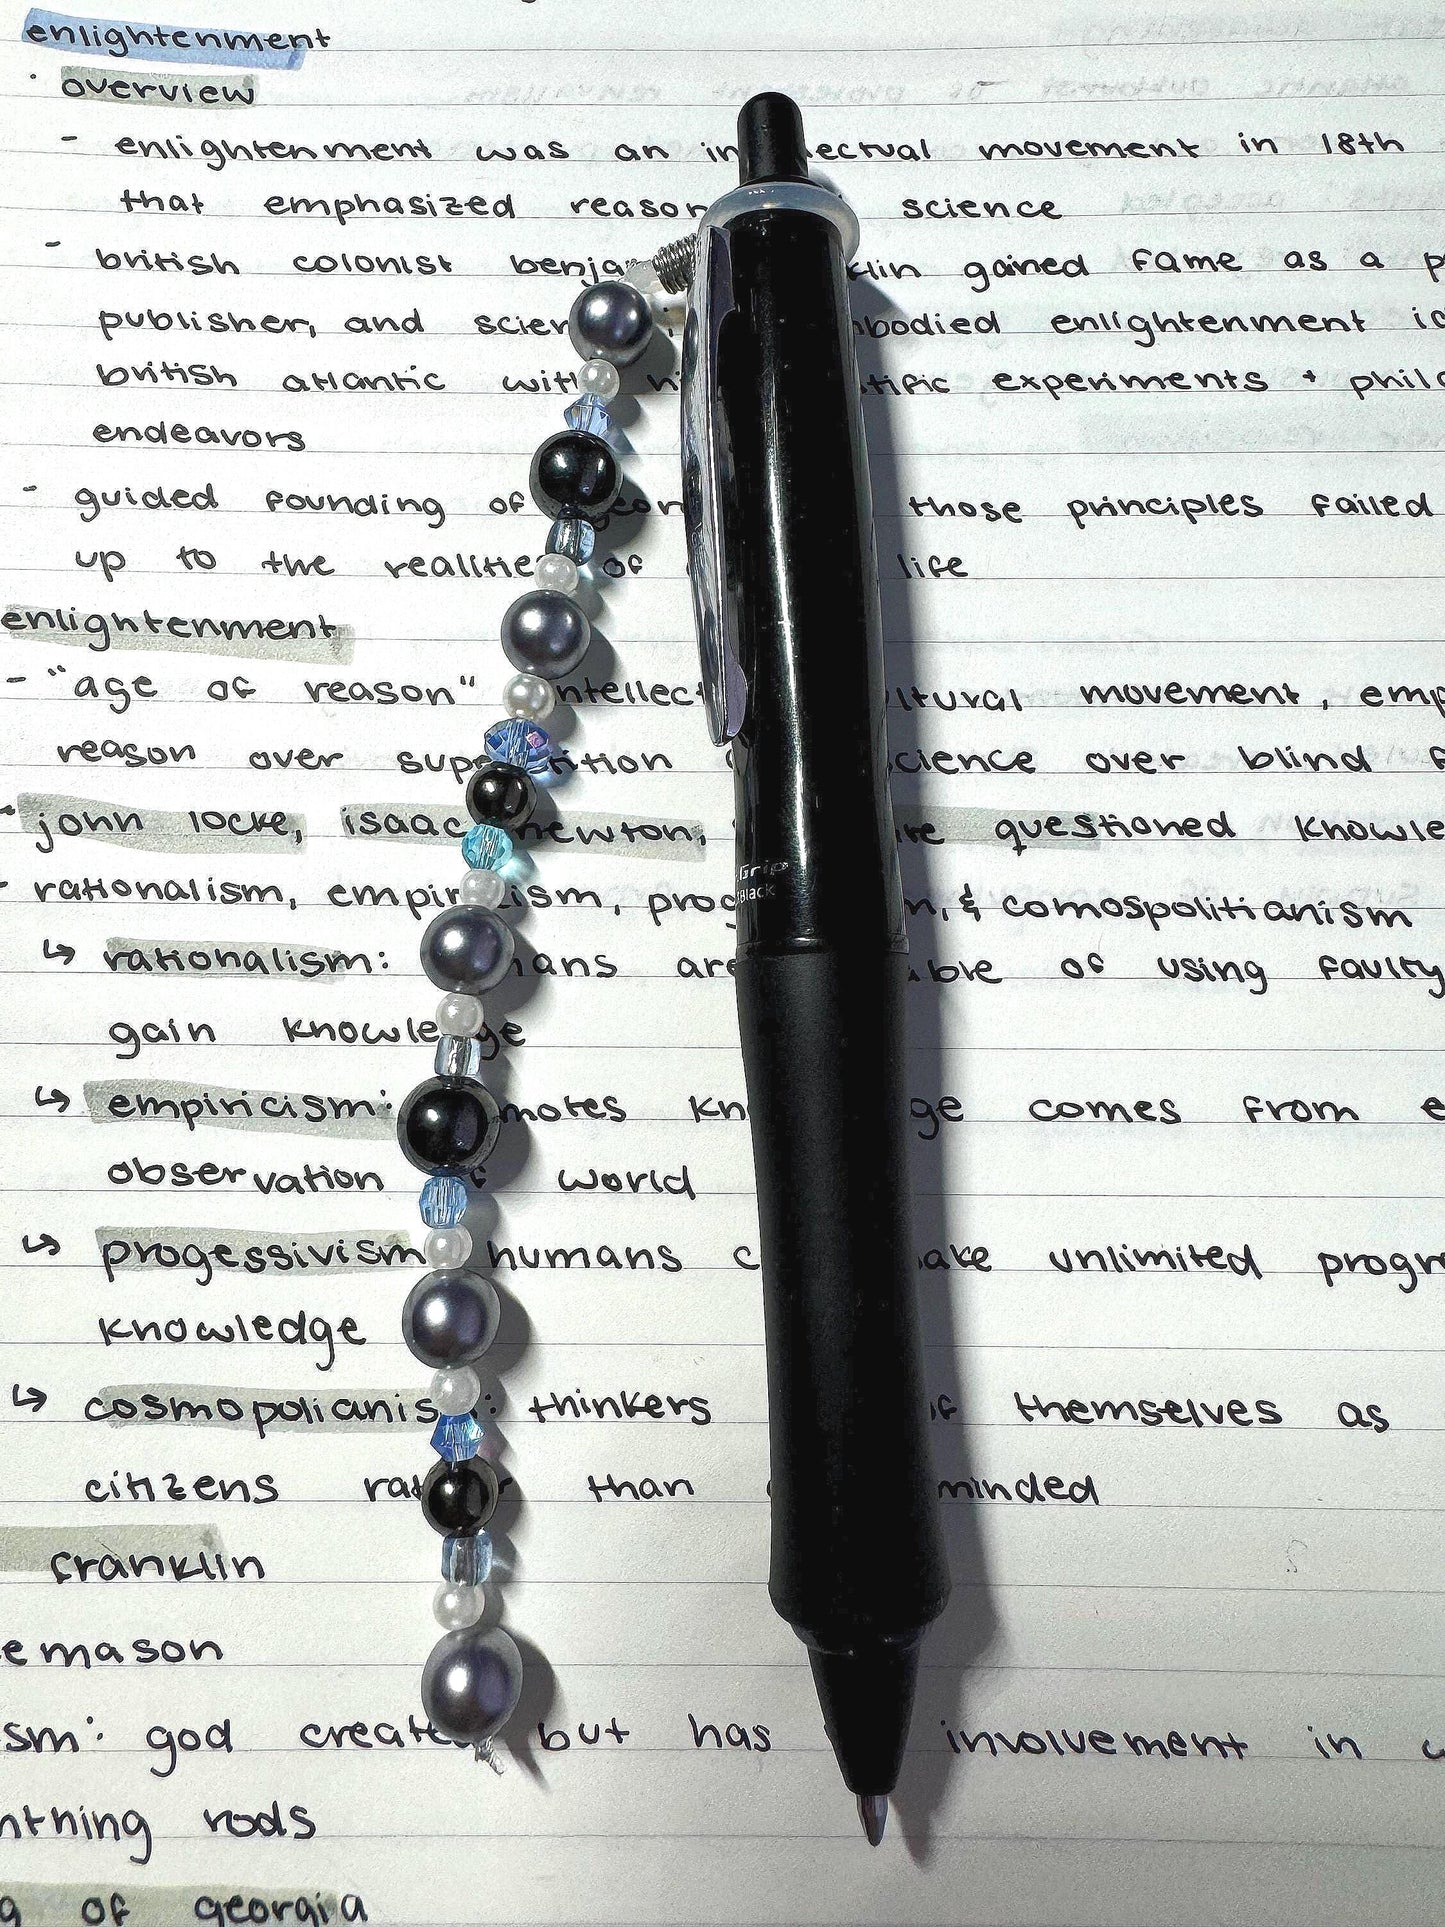 enlightenment
overview
- enlightenment was an in ectual movement in 18th
that emphasized reason science
- british colonist benja klin gained fame as a
publisher, and scien bodied enlightenment
british atlantic with tific experiments + philo
endeavors
- guided founding of geor those principles failed
up to the realities of life
enlightenment
- "age of reason" intellect ltural movement, emp
reason over sup ition science over blind
john locke, isaac newton, questioned knowle
- rationalism, empiricism, prog m, & comospolitianism
↳ rationalism: mans are ble of using faulty
gain knowledge
↳ empiricism: motes kn ge comes from
observation of world
↳ progessivism humans make unlimited progr
knowledge
↳ cosmopolianis : thinkers themselves as
citizens rather than minded
franklin
emason
ism: god created but has involvement in
nthning rods
g of georgia
Grip
Black